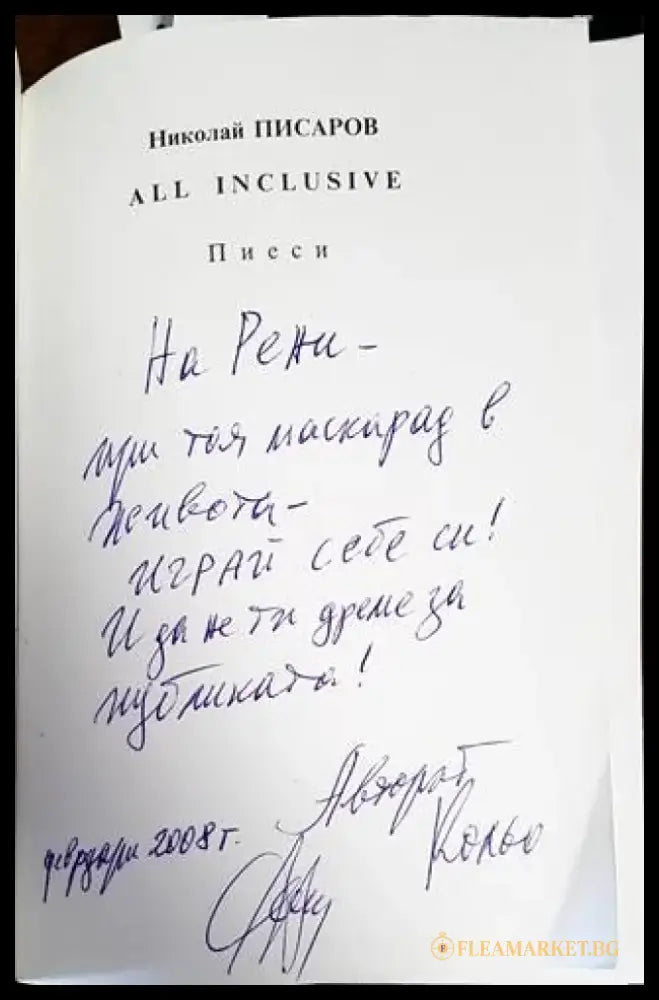 Николай ПИСАРОВ
ALL INCLUSIVE
Пиеси
На Рени –
при тоя маскарад в
живота –
ИГРАЙ себе си!
И да не ти дреме за
публиката!
Авторът
Кольо
февруари 2008 г.
FLEAMARKET.BG